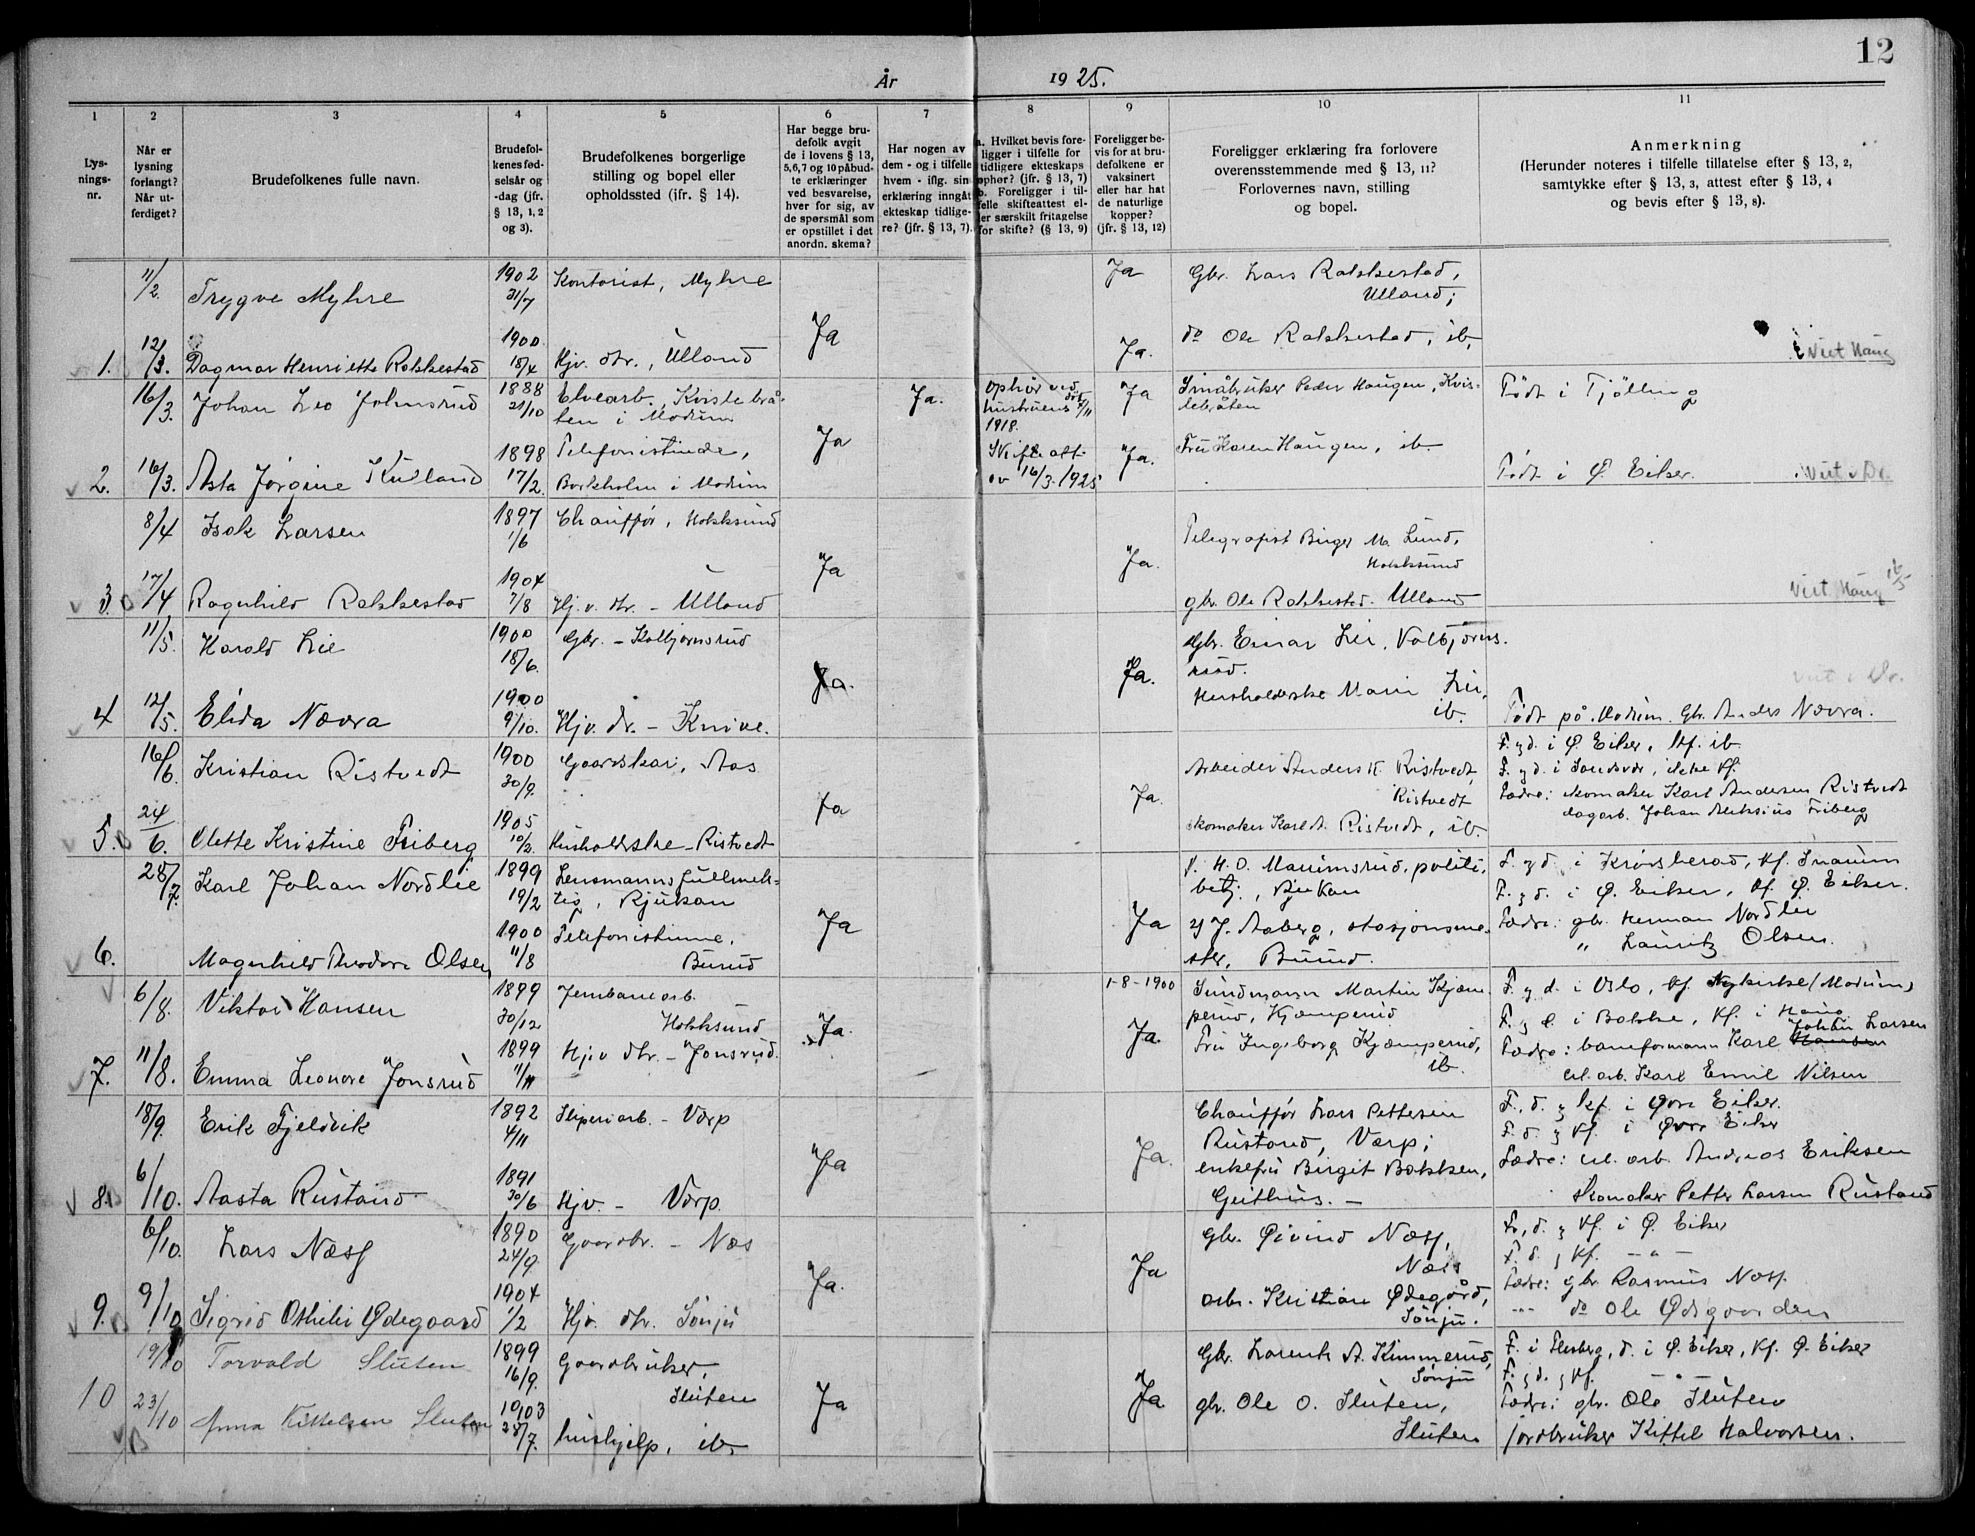 12
År 1925.
1 2 3 4 5 6 7 8 9 10 11
Lys-
nings-
nr.
Når er
lysning
forlangt?
Når ut-
ferdiget?
Brudefolkenes fulle navn.
Brudefol-
kenes fød-
selsår og
-dag (jfr.
§ 13, 1, 2
og 3).
Brudefolkenes borgerlige
stilling og bopel eller
opholdssted (jfr. § 14).
Har begge bru-
defolk avgit
de i lovens § 13,
5, 6, 7 og 10 påbud-
te erklæringer
ved besvarelse,
hver for sig, av
de spørsmål som
er opstillet i det
anordn. skema?
Har nogen av
dem - og i tilfelle
hvem - iflg. sin
erklæring inngått
ekteskap tidlige-
re? (jfr. § 13, 7).
a. Hvilket bevis fore-
ligger i tilfelle for
tidligere ekteskaps
ophør? (jfr. § 13, 7)
b. Foreligger i til-
felle skifteattest el-
ler særskilt fritagelse
for skifte? (§ 13, 9)
Foreligger be-
vis for at bru-
defolkene er
vaksinert
eller har hat
de naturlige
kopper?
(jfr. § 13, 12)
Foreligger erklæring fra forlovere
overensstemmende med § 13, 11?
Forlovernes navn, stilling
og bopel.
Anmerkning
(Herunder noteres i tilfelle tillatelse efter § 13, 2,
samtykke efter § 13, 3, attest efter § 13, 4
og bevis efter § 13, 8).
11/2. Trygve Myhre 1902 31/7 Kontorist, Myhre Ja Gbr. Lars Rokkestad,
Ulland;
Ja
1. 12/3. Dagmar Henriette Rokkestad 1900 18/4 Hjv. dtr., Ulland Ja. do Ole Rokkestad, ib. Viet Haug
16/3 Johan Leo Johnsrud 1888 21/10 Elvearb., Kvistebrå-
ten i Modum Ja. Ophør ved
hustruens død 4/11
1918. Ja Småbruker Peder Haugen, Kvis-
tebråten Født i Tjølling
Ja
2. 16/3. Asta Jørgine Kulland 1898 17/2. Telefonistinde,
Borkholm i Modum Skifteatt.
av 16/3. 1925 Ja. Fru Karen Haugen, ib. Født i Ø. Eiker. Viet i Dr.
8/4 Isak Larsen 1897 1/6 Chauffør, Hokksund Telegrafist Birger M. Lund,
Hokksund
Ja Ja.
3. 17/4 Ragnhild Rokkestad 1904 7/8 Hj.v. dtr. - Ulland gbr. Ole Rokkestad. Ulland Viet Haug
11/5. Harald Lie 1900 18/6. Gbr. - Kolbjørnsrud Gbr. Einar Lie, Kolbjørns-
rud.
Ja. Ja.
Husholderske Marie Lie,
ib.
4 12/5. Elida Nævra 1900 9/10. Hjv. dr. - Knive. Født på Modum. Gbr. Anders Nævra.
16/6. Kristian Ristvedt 1900 30/9. Gaardskar, Aas Arbeider Anders K. Ristvedt,
Ristvedt F. z d. i Ø. Eiker, kf. ib
F. z d. i Sandsvær, ikke kf.
Ja Ja.
5. 24/6. Olette Kristine Friberg 1905 10/2. Husholderske - Ristvedt skomaker Karl A. Ristvedt, ib. Fædre: skomaker Karl Andersen Ristvedt
dagarb. Johan Aleksius Friberg
28/7. Karl Johan Nordlie 1899 19/2 Lensmannsfullmek-
tig, Rjukan 1. H. O. Manimsrud, politi-
betj., Rjukan F. z d. i Krødsherad, kf. Snarum
F. z d. i Ø. Eiker, kf. Ø. Eiker.
Ja Ja
6. Magnhild Theodora Olsen 1900 11/8 Telefonistinne,
Burud 2) J. Aaberg, stasjonsme-
ster, Burud. Fædre: gbr. Herman Nordlie
" Lauritz Olsen.
6/8. Viktor Hansen 1899 30/12 Jernbanearb.
Hokksund 1-8-1900 Sundmann Martin Kjæm-
perud, Kjæmperud F. z d. i Oslo, kf. Nykirke (Modum)
F. z d. i Bakke, kf. i Haug
Ja. Ja.
7. 11/8. Emma Leonore Jonsrud 1899 1/11 Hjv dtr. - Jonsrud. Fru Ingeborg Kjæmperud,
ib. Fædre: baneformann Karl Johan Larsen
cel. arb. Karl Emil Nilsen
18/9. Erik Fjeldvik 1892 4/11 Sliperiarb. - Vorp Chauffør Lars Pettersen
Rustand, Værp; F., d. z kf. i Øvre Eiker.
F. d. z kf. i Øvre Eiker
Ja Ja.
8. 6/10. Aasta Rustand 1891 30/6 Hjv. - Vorp. enkefru Birgit Bakken,
Geithus. - Fædre: cel. arb. Andreas Eriksen
Skomaker Petter Larsen Rustand
6/10. Lars Næss 1890 24/9. Gaardbr. - Næs Gbr. Øivind Næss,
Næss F., d. z kf. i Ø. Eiker
F. d. z kf. - " -
Ja. Ja
9. 9/10 Sigrid Othilie Ødegaard 1904 1/2 Hjv. dtr. Sønju arb. Kristian Ødegård,
Sønju. Fædre: gbr. Rasmus Næss.
" do Ole Ødegaarden
19/10 Torvald Sluten 1899 16/9. Gaardbruker,
Sluten Gbr. Laurits A. Kimmerud,
Sønju F. i Flesberg, d. i Ø. Eiker, kf. Ø. Eiker
F. z d. z kf. - " -
Ja Ja
10 23/10 Anna Kittelsen Sluten 1903 28/7. hushjelp, ib. gbr. Ole O. Sluten,
Sluten Fædre: gbr. Ole Sluten
jordbruker Kittel Halvorsen.